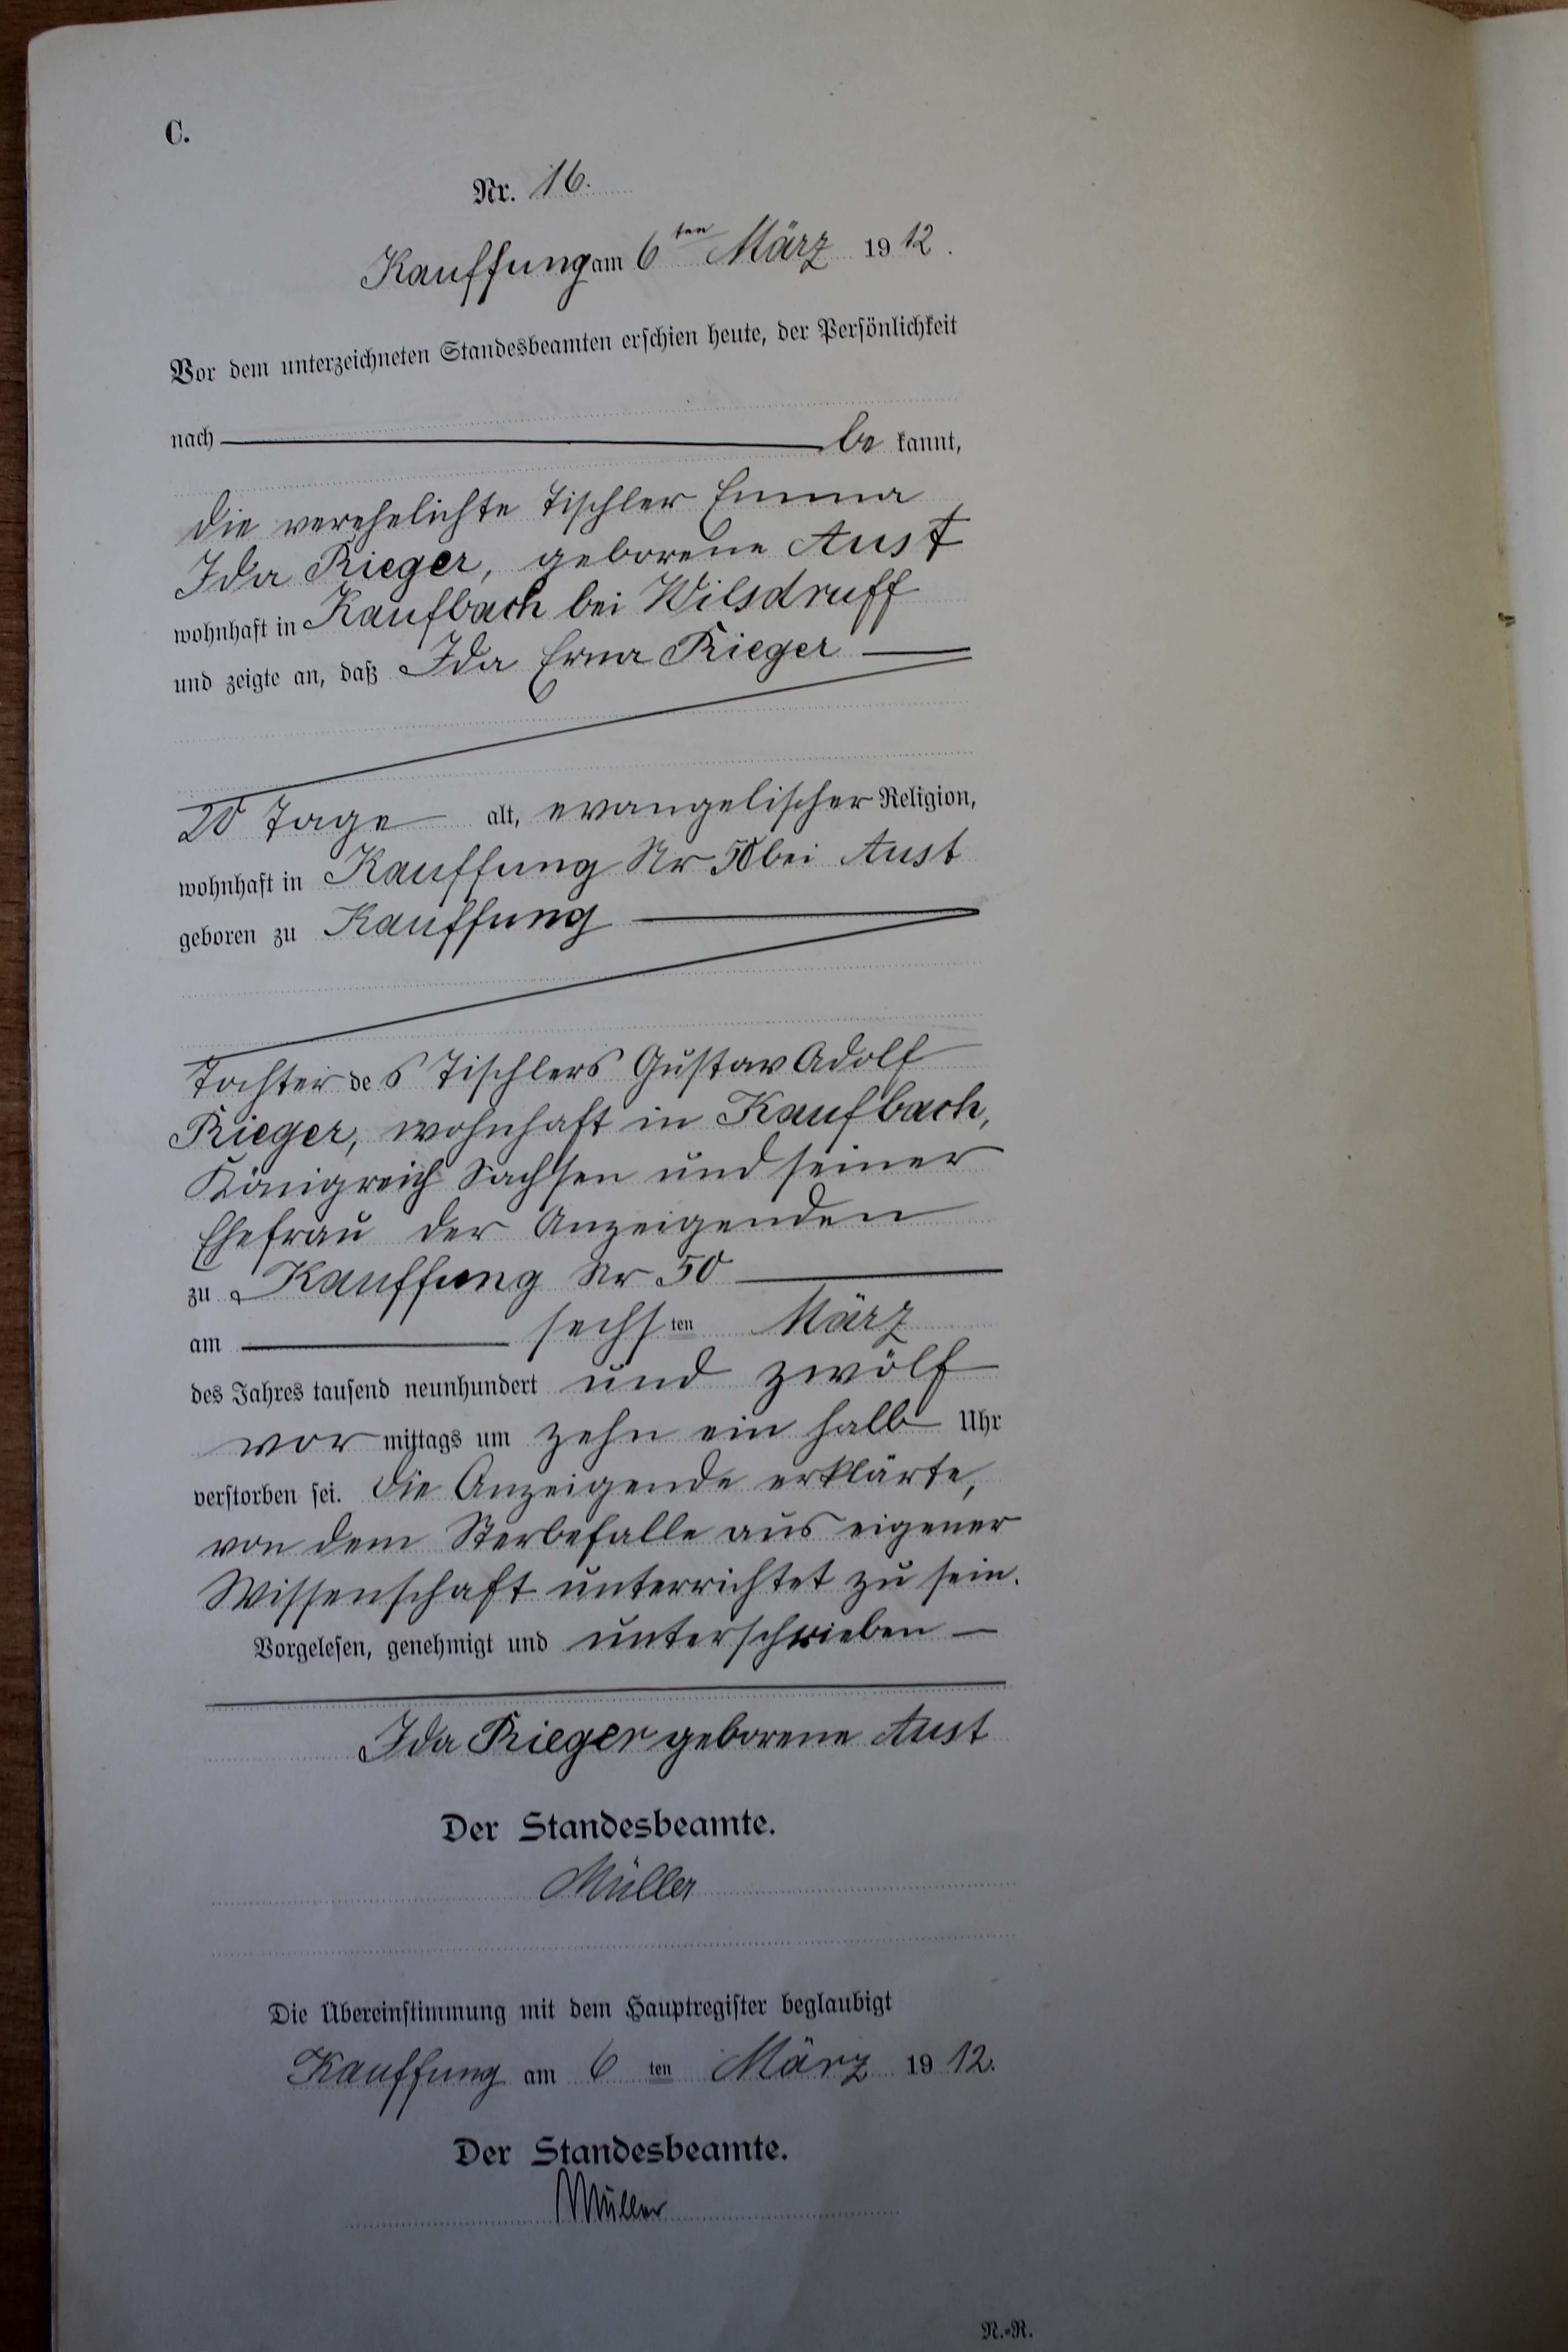 C.
Nr. 16.
Kauffung am 6ten März 1912.
Vor dem unterzeichneten Standesbeamten erschien heute, der Persönlichkeit
nach be kannt,
die verehelichte Tischler Emma
Ida Rieger, geborene Aust
wohnhaft in Kaufbach bei Wilsdruff
und zeigte an, daß Ida Erna Rieger
20 Tage alt, evangelischer Religion,
wohnhaft in Kauffung Nr 50 bei Aust
geboren zu Kauffung
Tochter des Tischlers Gustav Adolf
Rieger, wohnhaft in Kaufbach,
Königreich Sachsen und seiner
Ehefrau der Anzeigenden
zu Kauffung Nr 50
am sechsten März
des Jahres tausend neunhundert und zwölf
vor mittags um zehn ein halb Uhr
verstorben sei. Die Anzeigende erklärte,
von dem Sterbefalle aus eigener
Wissenschaft unterrichtet zu sein.
Vorgelesen, genehmigt und unterschrieben
Ida Rieger geborene Aust
Der Standesbeamte.
Müller
Die Übereinstimmung mit dem Hauptregister beglaubigt
Kauffung am 6 ten März 1912.
Der Standesbeamte.
Müller
N.=R.